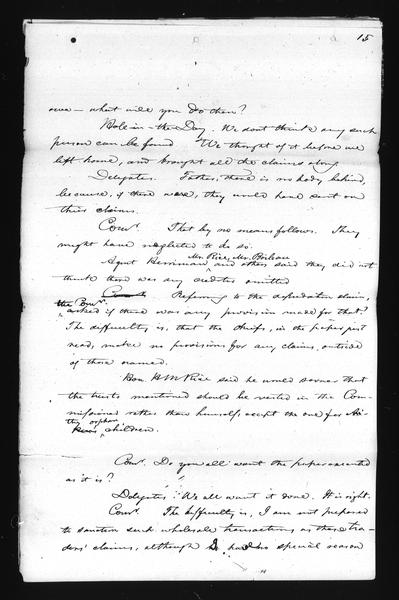 15
owe — what will you do then?
Hole-in-the-Day. We dont think any such
person can be found We thought of it before we
left home, and brought all the claims along
Delegates. Father, there is no body behind,
because, if there were, they would have sent on
their claims.
Comr. That by no means follows. They
might have neglected to do so.
Mr. Rice, Mr.
Agent Herriman and others said they did not
think there was any creditors omitted
Comr. Referring to the depredation claim,
the Comr.
asked if there was any provision made for that?
The difficulty is, that the chiefs, in the paper just
read, make no provisions for any claims outside
of those named.
Hon. H M Rice said he would sooner that
the trusts mentioned should be vested in the Com-
missioner rather than himself, except the one for
the orphan
children.
Comr. Do you all want the paper executed
as it is?
Delegates. We all want it done. It is right.
Comr. The difficulty is, I am not prepared
to sanction such wholesale transactions as these tra-
ders' claims, although I had no special reason